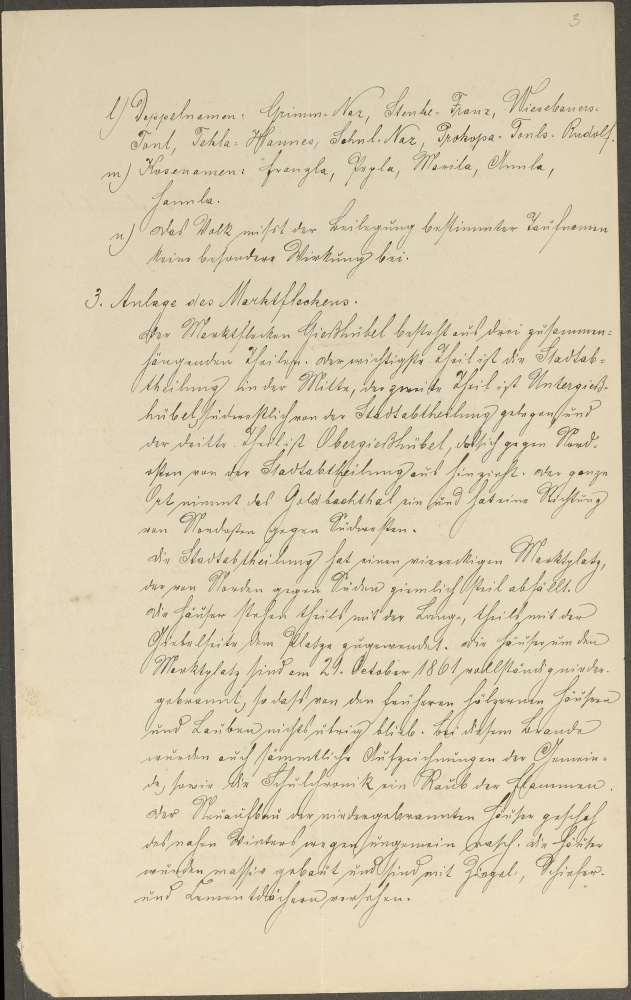 3
l) Doppelnamen: Grimm-Naz, Stenke-Franz, Wiesebauers-
Tonl, Tekla-Hannes, Sohnl-Naz, Prokopa-Tonls-Rudolf.
m) Kosenamen: Franzla, Pepla, Marila, Annla,
Hannla.
n) Das Volk misst der Beilegung bestimmter Taufnamen
keine besondere Wirkung bei.
3. Anlage des Marktfleckens.
Der Marktflecken Gießhübel besteht aus drei zusammen-
hängenden Theilen. Der wichtigste Theil ist die Stadtab-
theilung in der Mitte, der zweite Theil ist Untergieß-
hübel, südwestlich von der Stadtabtheilung gelegen, und
der dritte Theil ist Obergießhübel, das sich gegen Nord-
osten von der Stadtabtheilung aus hinzieht. Der ganze
Ort nimmt das Goldbachthal ein und hat eine Richtung
von Nordosten gegen Südwesten.
Die Stadtabtheilung hat einen viereckigen Marktplatz,
der von Norden gegen Süden ziemlich steil abfällt.
Die Häuser stehen theils mit der Länge, theils mit der
Giebelseite dem Platze zugewendet. Die Häuser um den
Marktplatz sind am 21. October 1861 vollständig nieder-
gebrannt, so dass von den früheren hölzernen Häusern
und Lauben nichts übrig blieb. Bei diesem Brande
wurden auch sämmtliche Aufzeichnungen der Gemein-
de, sowie die Schulchronik ein Raub der Flammen.
Der Neuaufbau der niedergebrannten Häuser geschah
des nahen Winters wegen ungemein rasch. Die Häuser
wurden massiv gebaut und sind mit Ziegel-, Schiefer-
und Cementdächern versehen.